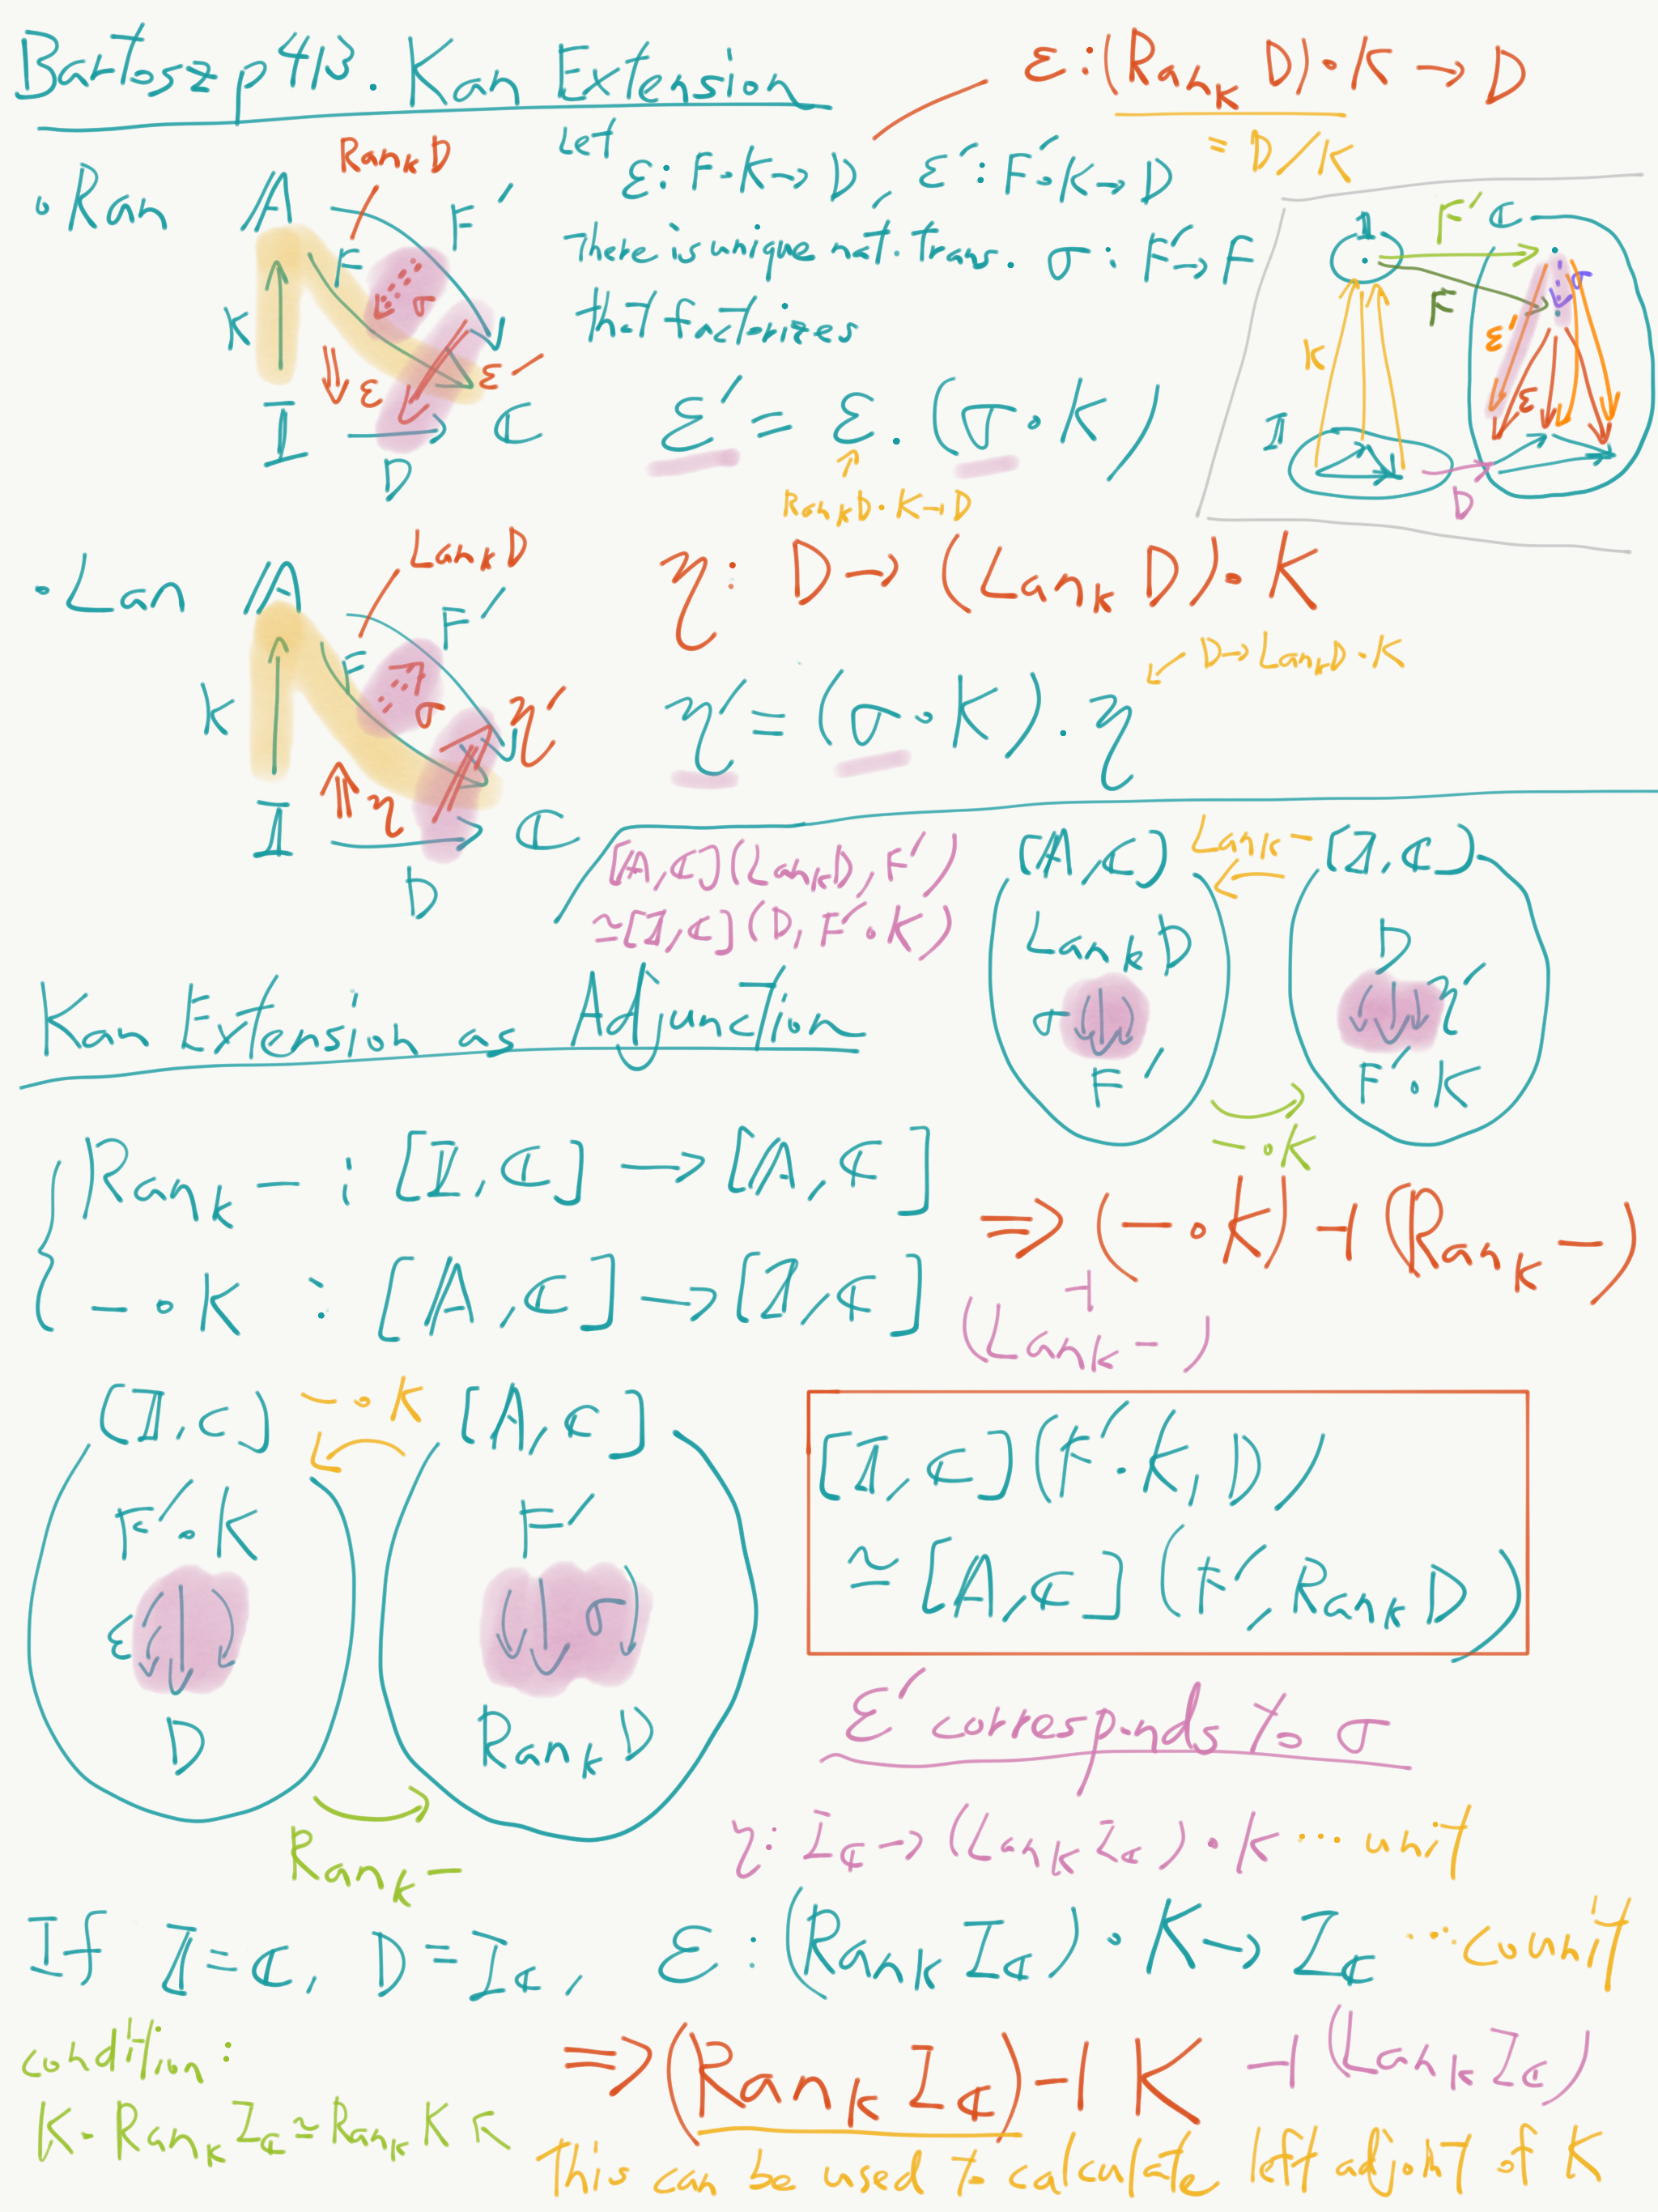 Bartosz p413. Kan Extension
ε : (Ran_K D) ∘ K → D
= D/K
∘ Ran
Ran_K D
A
F
F′
K
σ
ε
ε′
I
D
C
Let ε : F∘K → D, ε′ : F′∘K → D
There is unique nat. trans. σ : F′→F
that factorizes
ε′ = ε . (σ ∘ K)
Ran_K D ∘ K → D
1
F′
C
F
σ
K
ε′
ε
I
D
• Lan
Lan_K D
A
F
F′
K
σ
η′
η
I
D
C
η : D → (Lan_K D) ∘ K
D → Lan_K D ∘ K
η′ = (σ ∘ K) . η
[A, C](Lan_K D, F′)
≃ [I, C](D, F′∘K)
[A, C]
Lan_K −
[I, C]
Lan_K D
σ
F′
D
η′
F′∘K
− ∘ K
Kan Extension as Adjunction
Ran_K − : [I, C] → [A, C]
− ∘ K : [A, C] → [I, C]
⇒ (− ∘ K) ⊣ (Ran_K −)
⊣
(Lan_K −)
[I, C]
− ∘ K
[A, C]
F′∘K
ε′
D
F′
σ
Ran_K D
Ran_K −
[I, C](F′∘K, D)
≃ [A, C](F′, Ran_K D)
ε′ corresponds to σ
η : I_C → (Lan_K I_C) ∘ K ... unit
If I = C, D = I_C, ε : (Ran_K I_C) ∘ K → I_C ... counit
condition:
K ∘ Ran_K I_C ≃ Ran_K K
⇒ (Ran_K I_C) ⊣ K ⊣ (Lan_K I_C)
This can be used to calculate left adjoint of K